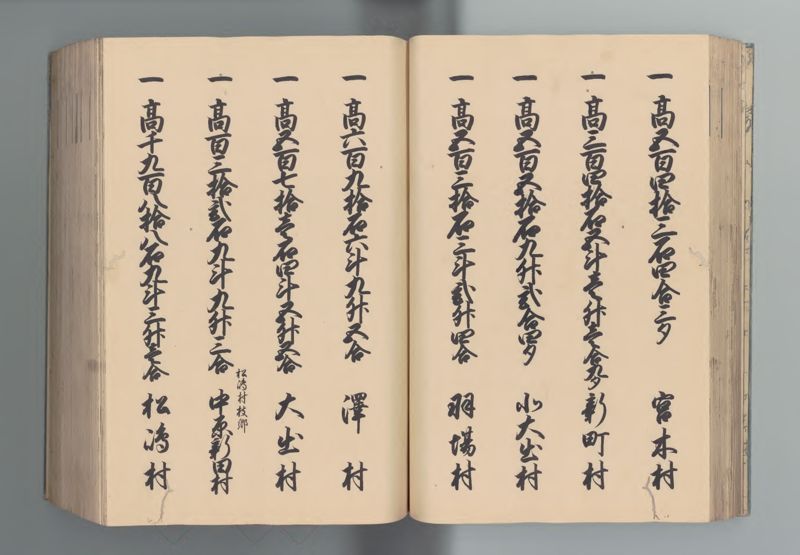 一 高五百四拾三石四合三夕 宮木村
一 高三百四拾石五斗壱升壱合九夕 新町村
一 高五百五拾石九升弐合四夕 北大出村
一 高五百三拾石三斗弐升四合 羽場村
一 高六百九拾石六斗九升五合 澤村
一 高五百七拾壱石四斗五升五合 大出村
一 高百三拾弐石九斗九升三合 松嶋村枝郷 中原新田村
一 高千九百八拾八石九斗三升壱合 松嶋村